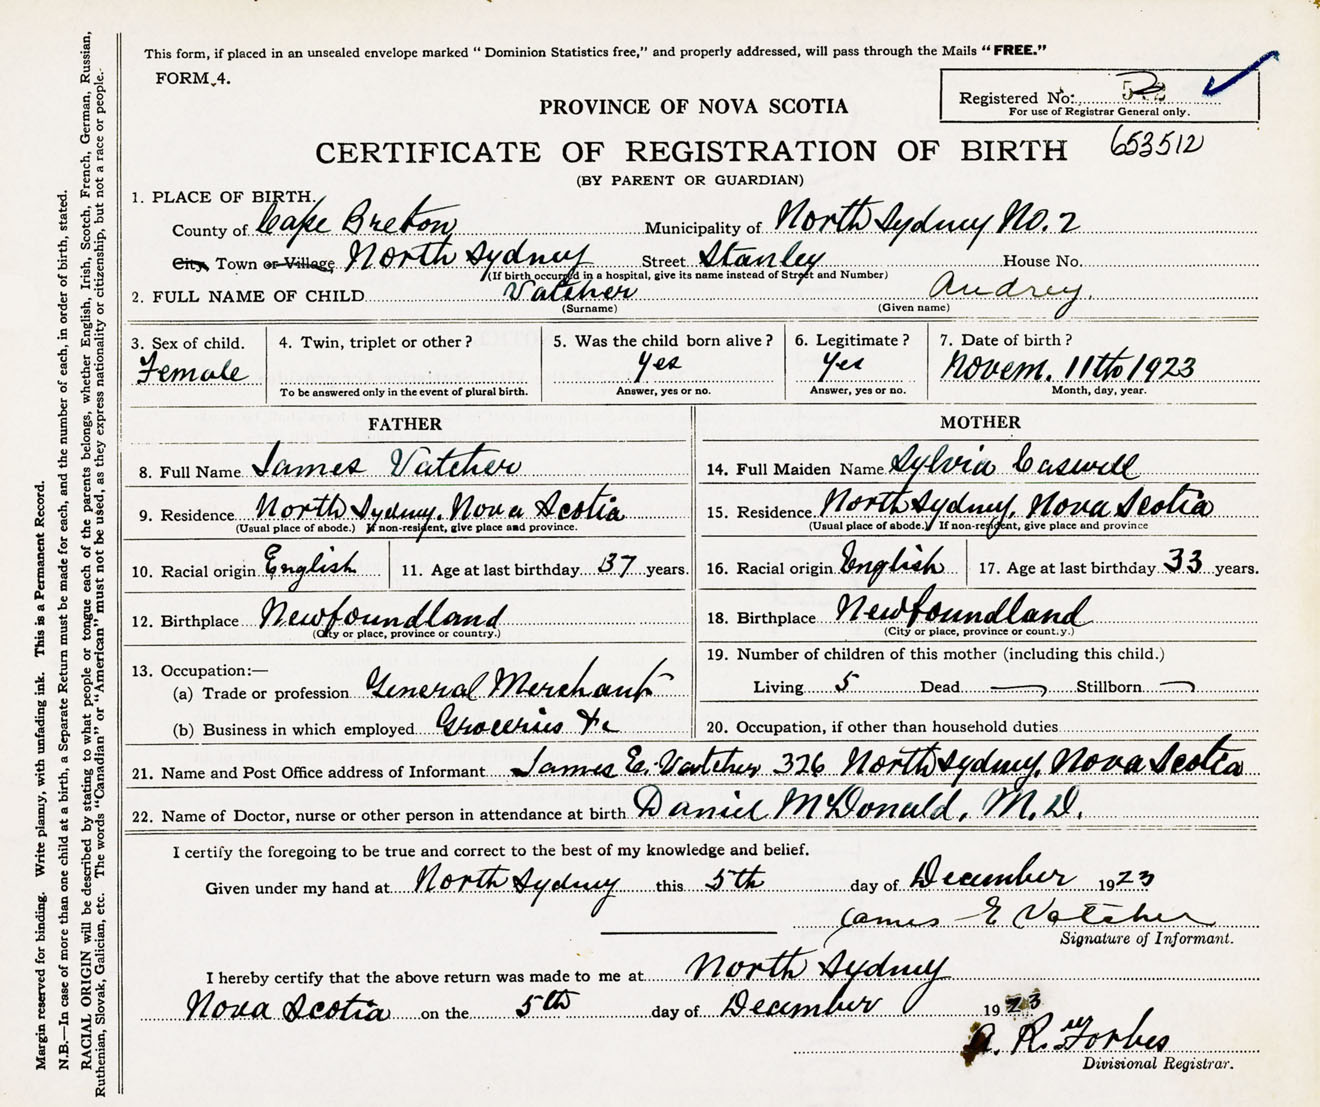 This form, if placed in an unsealed envelope marked “ Dominion Statistics free,” and properly addressed, will pass through the Mails “ FREE.”
FORM 4.
Registered No:
For use of Registrar General only.
PROVINCE OF NOVA SCOTIA
653512
CERTIFICATE OF REGISTRATION OF BIRTH
(BY PARENT OR GUARDIAN)
1. PLACE OF BIRTH.
County of Cape Breton Municipality of North Sydney No. 2
City, Town or Village North Sydney Street Stanley House No.
(If birth occurred in a hospital, give its name instead of Street and Number)
2. FULL NAME OF CHILD Vatcher Audrey.
(Surname) (Given name)
3. Sex of child. 4. Twin, triplet or other ? 5. Was the child born alive ? 6. Legitimate ? 7. Date of birth ?
Female Yes Yes Novem. 11th 1923
To be answered only in the event of plural birth. Answer, yes or no. Answer, yes or no. Month, day, year.
FATHER MOTHER
8. Full Name James Vatcher 14. Full Maiden Name Sylvia Caswell
9. Residence North Sydney, Nova Scotia 15. Residence North Sydney, Nova Scotia
(Usual place of abode.) If non-resident, give place and province. (Usual place of abode.) If non-resident, give place and province
10. Racial origin English 11. Age at last birthday 37 years. 16. Racial origin English 17. Age at last birthday 33 years.
12. Birthplace Newfoundland 18. Birthplace Newfoundland
(City or place, province or country.) (City or place, province or country.)
13. Occupation:— 19. Number of children of this mother (including this child.)
(a) Trade or profession General Merchant Living 5 Dead — Stillborn —
(b) Business in which employed Groceries &c 20. Occupation, if other than household duties
21. Name and Post Office address of Informant James E. Vatcher 326 North Sydney, Nova Scotia
22. Name of Doctor, nurse or other person in attendance at birth Daniel McDonald, M.D.
I certify the foregoing to be true and correct to the best of my knowledge and belief.
Given under my hand at North Sydney this 5th day of December 1923
James E Vatcher
Signature of Informant.
I hereby certify that the above return was made to me at North Sydney
Nova Scotia on the 5th day of December 1923
A. R. Forbes
Divisional Registrar.
Margin reserved for binding. Write plainly, with unfading ink. This is a Permanent Record.
N.B.—In case of more than one child at a birth, a Separate Return must be made for each, and the number of each, in order of birth, stated.
RACIAL ORIGIN will be described by stating to what people or tongue each of the parents belongs, whether English, Irish, Scotch, French, German, Russian,
Ruthenian, Slovak, Galician, etc. The words “Canadian” or “American” must not be used, as they express nationality or citizenship, but not a race or people.